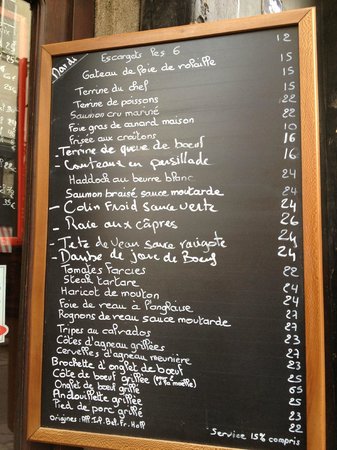 Mardi
Escargots les 6 12
Gateau de foie de volaille 15
Terrine du chef 15
Terrine de poissons 15
Saumon cru mariné 22
Foie gras de canard maison 22
Frisée aux croûtons 10
- Terrine de queue de bœuf 16
- Couteaux en persillade 16
Haddock au beurre blanc 24
Saumon braisé sauce moutarde 24
- Colin Froid sauce verte 24
- Raie aux câpres 26
- Tete de veau sauce ravigote 24
- Daube de joue de Bœuf 24
Tomates Farcies 22
Steak tartare 24
Haricot de mouton 24
Foie de veau à l'anglaise 27
Rognons de veau sauce moutarde 27
Tripes au calvados 23
Côtes d'agneau grillées 27
Cervelles d'agneau meunière 27
Brochette d'onglet de bœuf 25
Côte de bœuf grillée 65
Onglet de bœuf grillé 25
Andouillette grillée 23
Pied de porc grillé 22
Service 15% compris